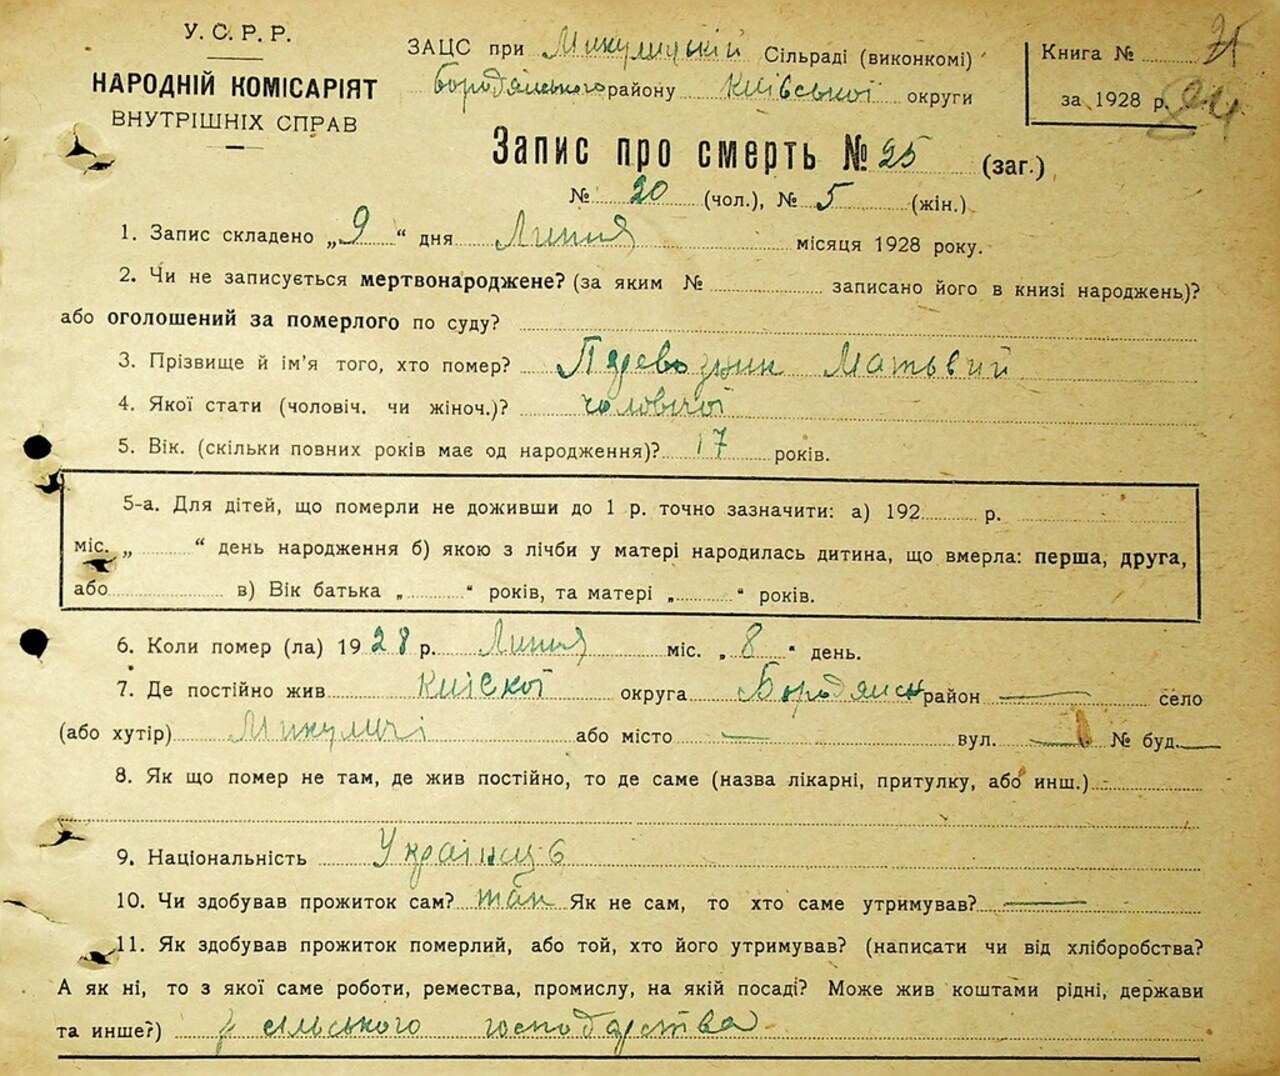 У. С. Р. Р.
НАРОДНІЙ КОМІСАРІЯТ
ВНУТРІШНІХ СПРАВ
ЗАЦС при Микулицькій Сільраді (виконкомі)
Бородянського району Київської округи
Книга №
за 1928 р.
Запис про смерть № 25 (заг.)
№ 20 (чол.), № 5 (жін.)
1. Запис складено „9“ дня Липня місяця 1928 року.
2. Чи не записується мертвонароджене? (за яким № записано його в книзі народжень)?
або оголошений за померлого по суду?
3. Прізвище й ім'я того, хто помер? Перевозник Матьвий
4. Якої стати (чоловіч. чи жіноч.)? чоловічої
5. Вік. (скільки повних років має од народження)? 17 років.
5-а. Для дітей, що померли не доживши до 1 р. точно зазначити: а) 192 р.
міс. „ “ день народження б) якою з лічби у матері народилась дитина, що вмерла: перша, друга,
або в) Вік батька „ “ років, та матері „ “ років.
6. Коли помер (ла) 1928 р. Липня міс. „8“ день.
7. Де постійно жив Киівскої округа Бородянськ район — село
(або хутір) Микуличі або місто — вул. — № буд. —
8. Як що помер не там, де жив постійно, то де саме (назва лікарні, притулку, або инш.)
9. Національність Українцъ
10. Чи здобував прожиток сам? так Як не сам, то хто саме утримував? —
11. Як здобував прожиток померлий, або той, хто його утримував? (написати чи від хліборобства?
А як ні, то з якої саме роботи, ремества, промислу, на якій посаді? Може жив коштами рідні, держави
та инше?) з сільського господарства